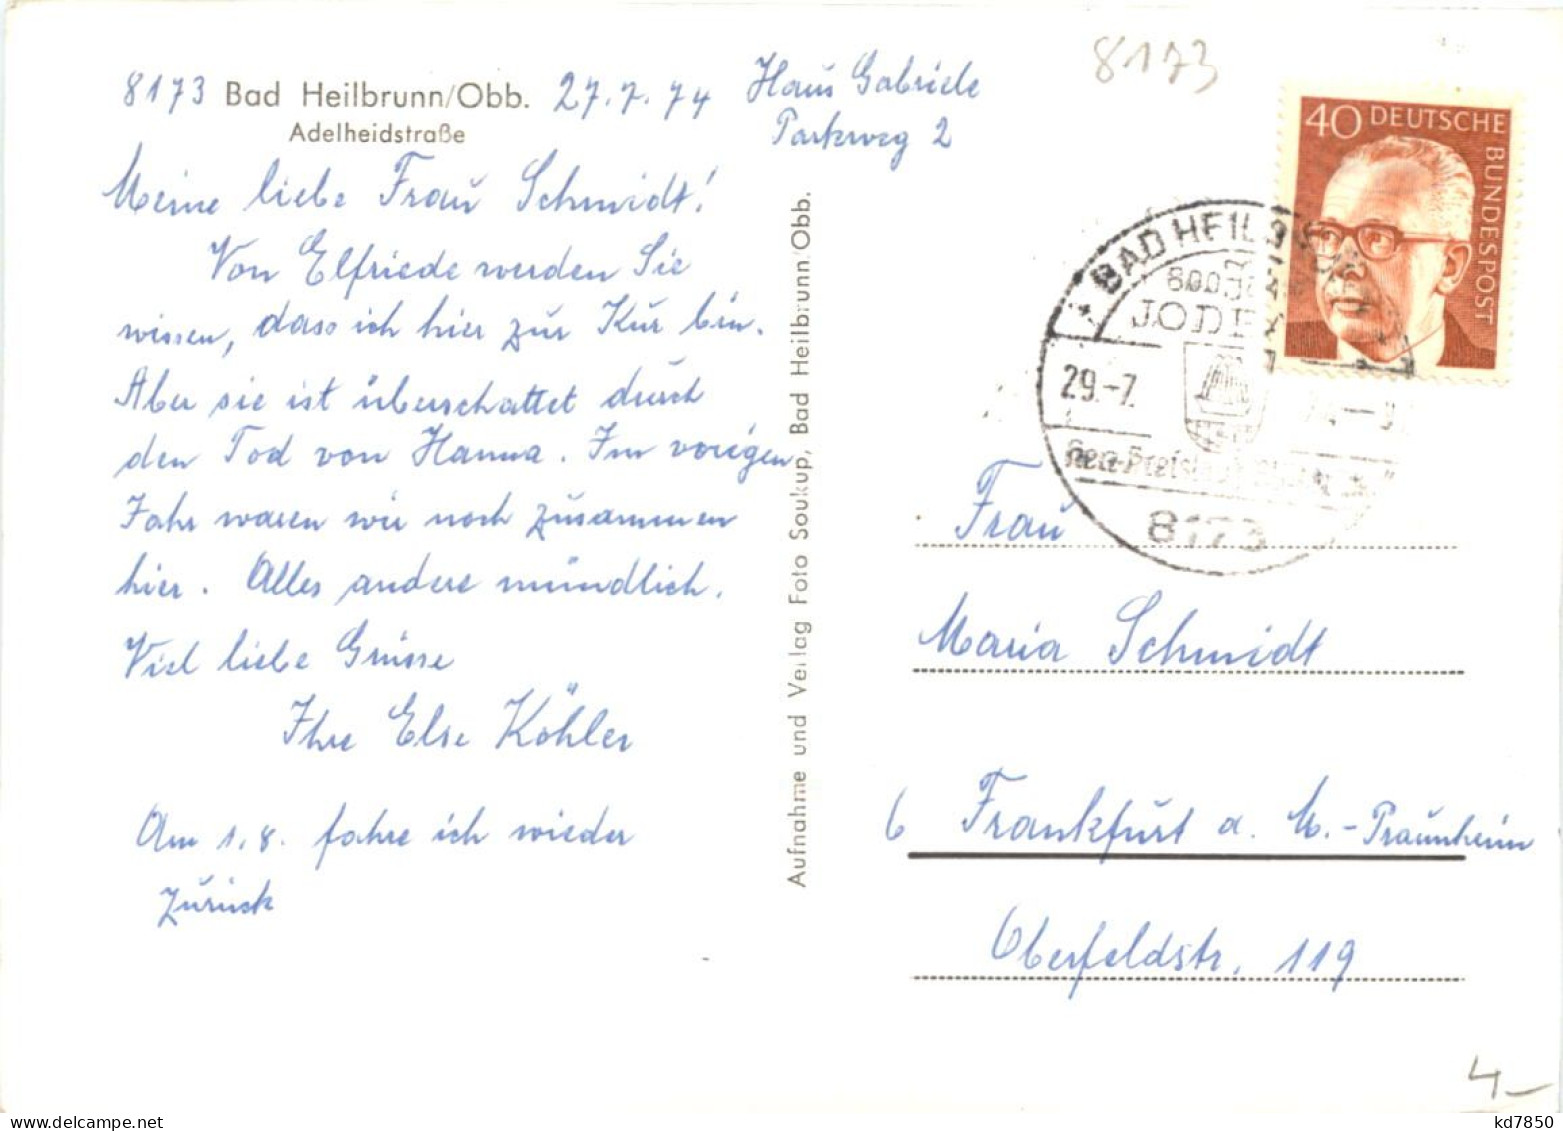 8173 Bad Heilbrunn/Obb. 27.7.74
Adelheidstraße
Haus Gabriele
Parkweg 2
Meine liebe Frau Schmidt!
Von Elfriede werden Sie
wissen, dass ich hier zur Kur bin.
Aber sie ist überschattet durch
den Tod von Hanna. Im vorigen
Jahr waren wir noch zusammen
hier. Alles andere mündlich.
Viel liebe Grüsse
Ihre Else Köhler
Am 1.8. fahre ich wieder
zurück
Aufnahme und Verlag Foto Soukup, Bad Heilbrunn/Obb.
8173
40 DEUTSCHE
BUNDESPOST
BAD HEIL
800
JOD
29.-7.
8173
Frau
Maria Schmidt
6 Frankfurt a. M.-Praunheim
Oberfeldstr. 119
4-
kd7850